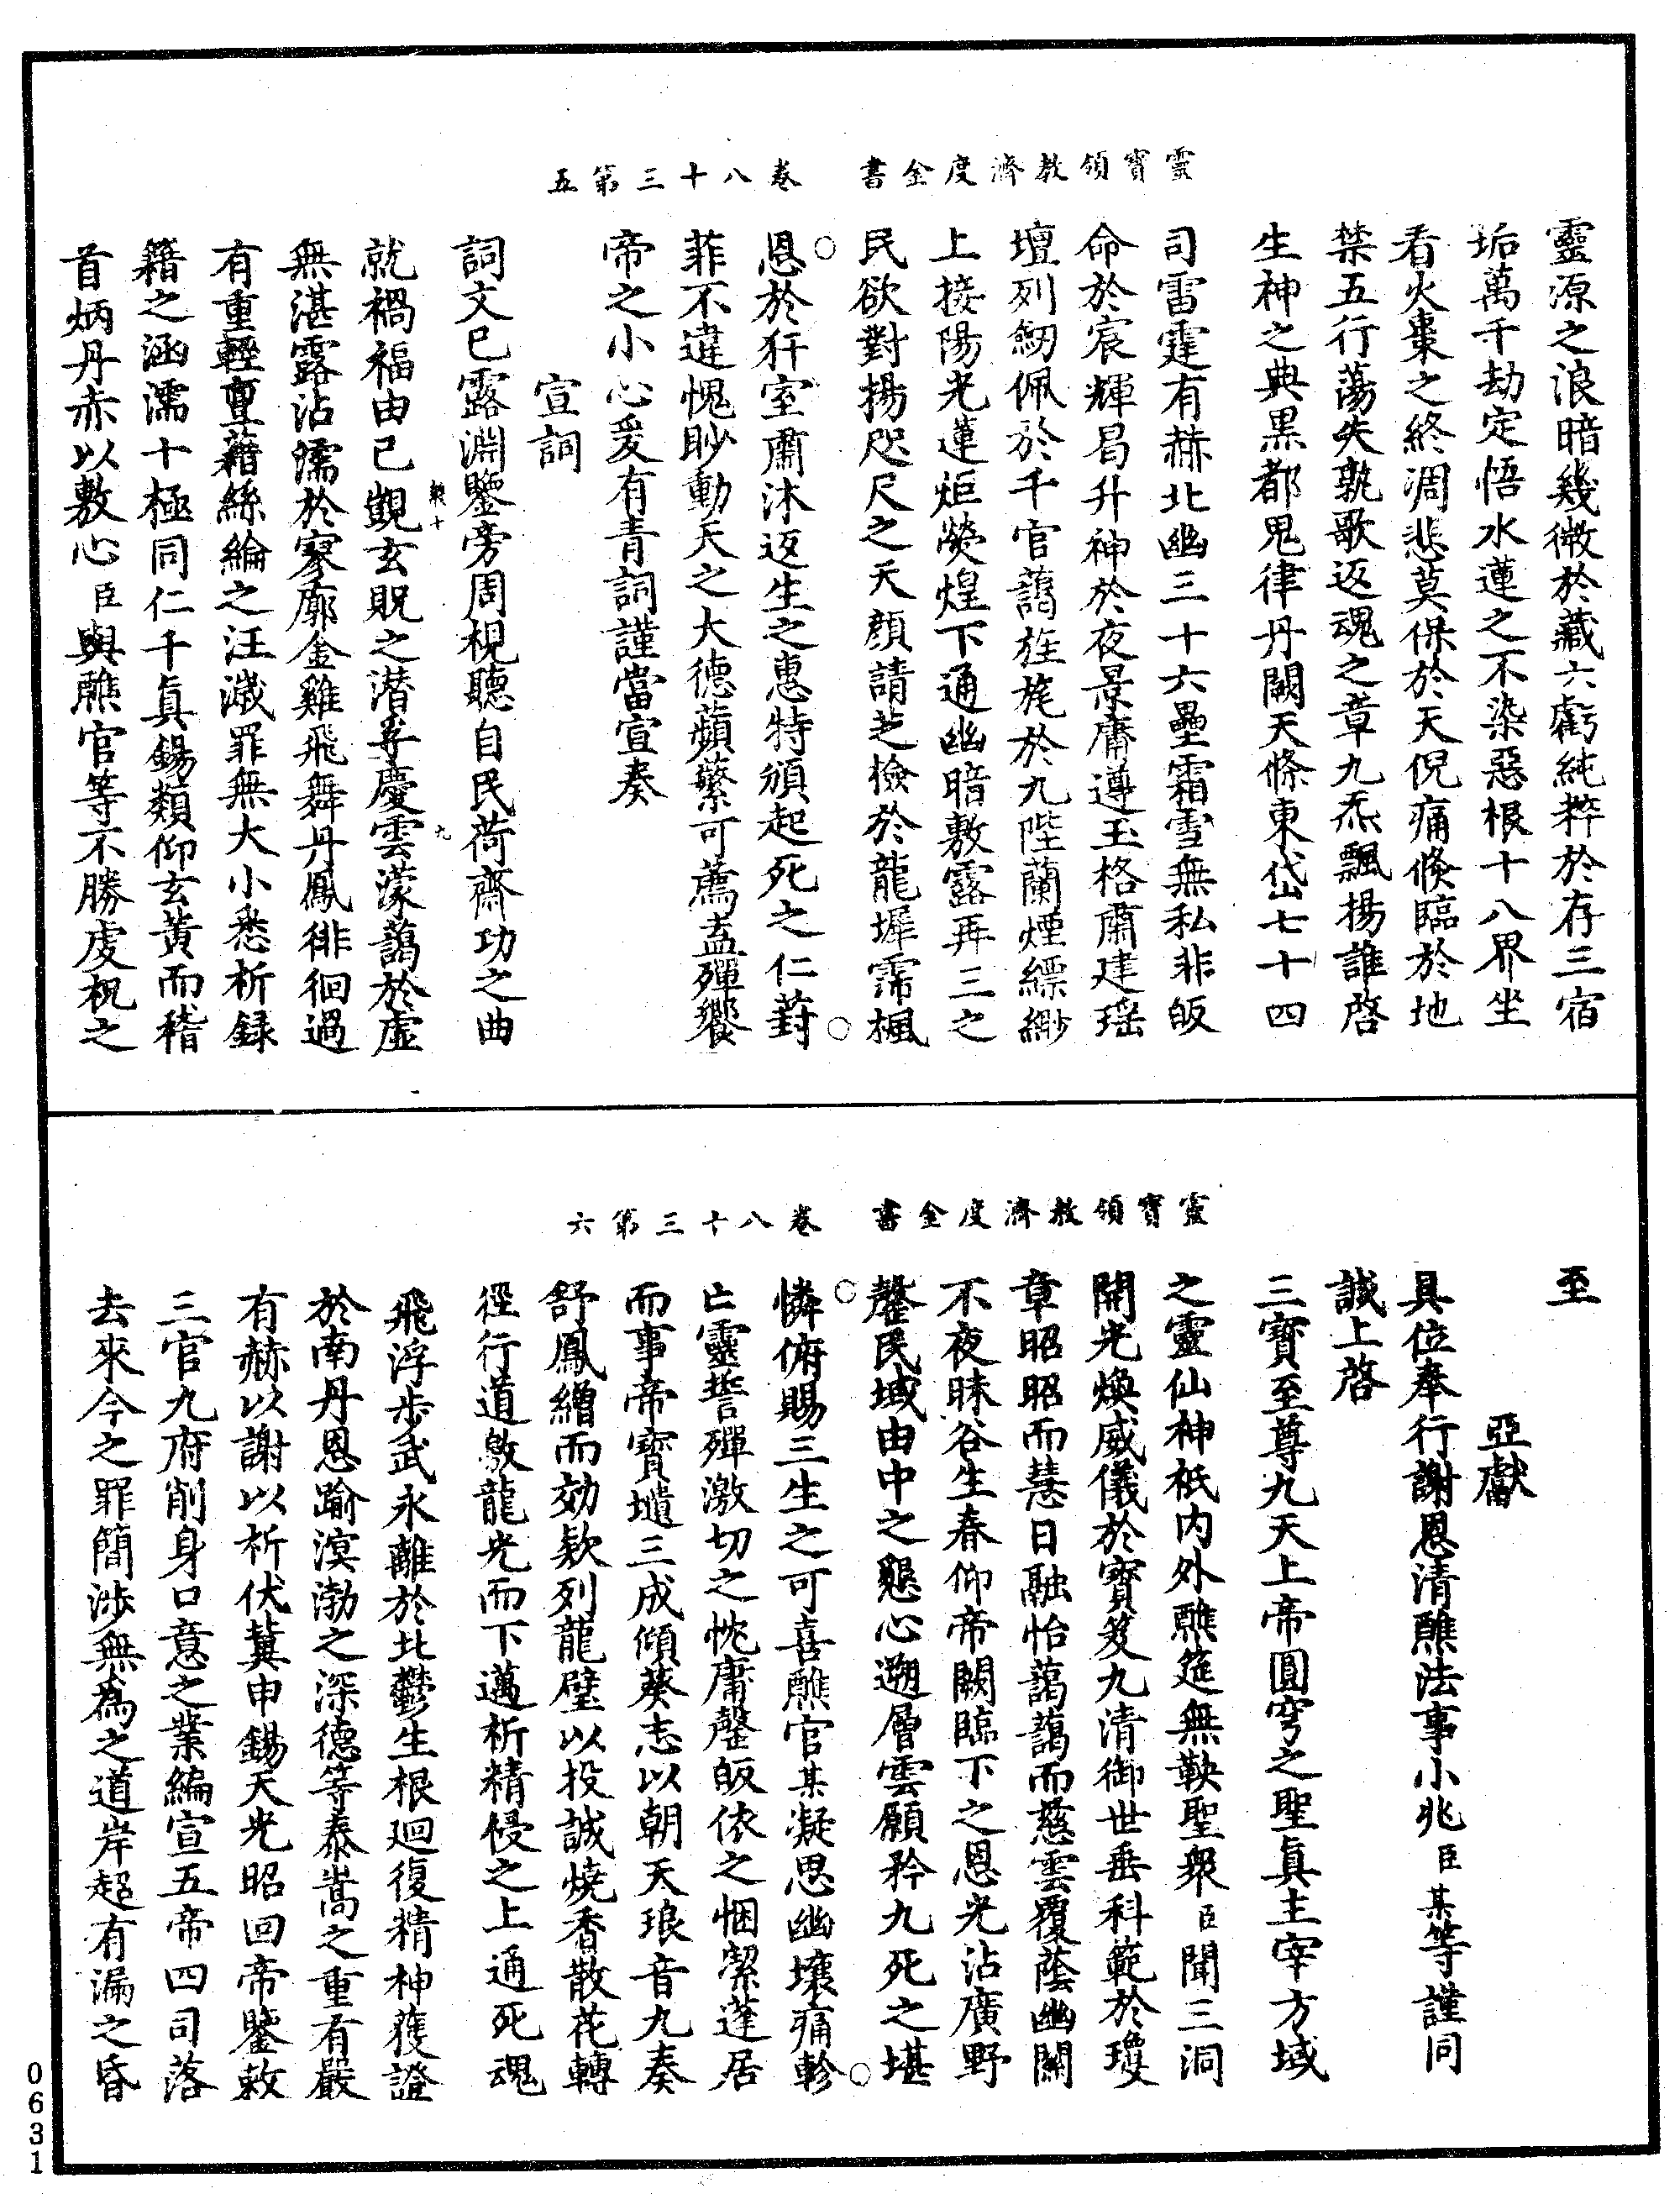 靈寶領教濟度金書　卷八十三第五
靈源之浪暗幾微於藏六虧純粹於存三宿
垢萬千劫定悟水蓮之不染惡根十八界坐
看火棗之終凋悲莫保於天倪痛倏臨於地
禁五行蕩失孰歌返魂之章九炁飄揚誰啓
生神之典黑都鬼律丹闕天條東岱七十四
司雷霆有赫北幽三十六壘霜雪無私非皈
命於宸輝曷升神於夜景庸遵玉格肅建瑤
壇列劒佩於千官藹旌旄於九陛蘭煙縹緲
上接陽光蓮炬熒煌下通幽暗敷露再三之
民欲對揚咫尺之天顔請芝檢於龍墀霈楓
恩於犴室肅沐返生之惠特頒起死之仁葑
菲不違愧眇動天之大德蘋蘩可薦盍殫饗
帝之小心爰有青詞謹當宣奏
宣詞
詞文已露淵鑒旁周視聽自民荷齋功之曲
就禍福由已覬玄貺之潛孚慶雲濛藹於虛
無湛露沾濡於寥廓金雞飛舞丹鳳徘徊過
有重輕亶藉絲綸之汪濊罪無大小悉析録
籍之涵濡十極同仁千眞錫類仰玄黃而稽
首炳丹赤以敷心臣與醮官等不勝虔祝之
九
靈寶領教濟度金書　卷八十三第六
至
亞獻
具位奉行謝恩清醮法事小兆臣某等謹同
誠上啓
三寶至尊九天上帝圓穹之聖眞主宰方域
之靈仙神祇内外醮筵無鞅聖衆臣聞三洞
開光煥威儀於寶笈九清御世垂科範於瓊
章昭昭而慧日融怡藹藹而慈雲覆蔭幽關
不夜昧谷生春仰帝闕臨下之恩光沾廣野
罄民域由中之懇心遡層雲願矜九死之堪
憐俯賜三生之可喜醮官某凝思幽壤痛軫
亡靈誓殫激切之忱庸罄皈依之悃潔蓬居
而事帝寶壝三成傾葵志以朝天琅音九奏
舒鳳繒而効欵列龍璧以投誠燒香散花轉
徑行道敫龍光而下邁析精祲之上通死魂
飛浮步武永離於北鬱生根廻復精神獲證
於南丹恩踰溟渤之深德等泰嵩之重有嚴
有赫以謝以祈伏冀申錫天光昭回帝鑒敕
三官九府削身口意之業編宣五帝四司落
去來今之罪簡涉無爲之道岸超有漏之昏
0631